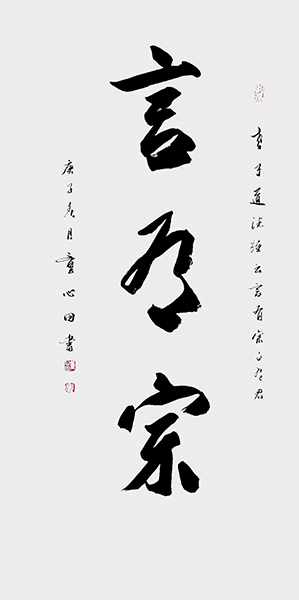 老子道德經云言有宗事有君
言有宗
庚子夏月童心田書